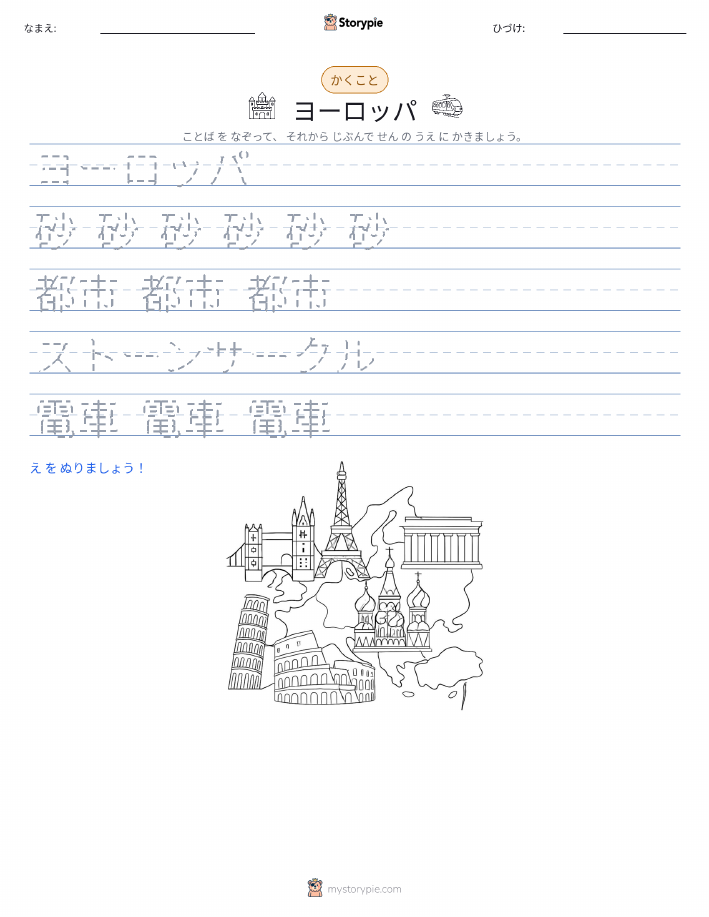 なまえ:
Storypie
ひづけ:
かくこと
ヨーロッパ
ことば を なぞって、 それから じぶんで せん の うえ に かきましょう。
ヨーロッパ
砂 砂 砂 砂 砂 砂
都市 都市 都市
ストーンサークル
電車 電車 電車
え を ぬりましょう！
mystorypie.com